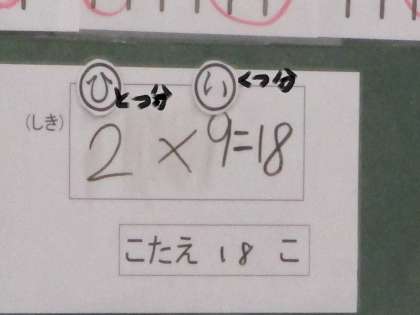 ひとつ分 いくつ分
(しき) 2×9=18
こたえ 18 こ